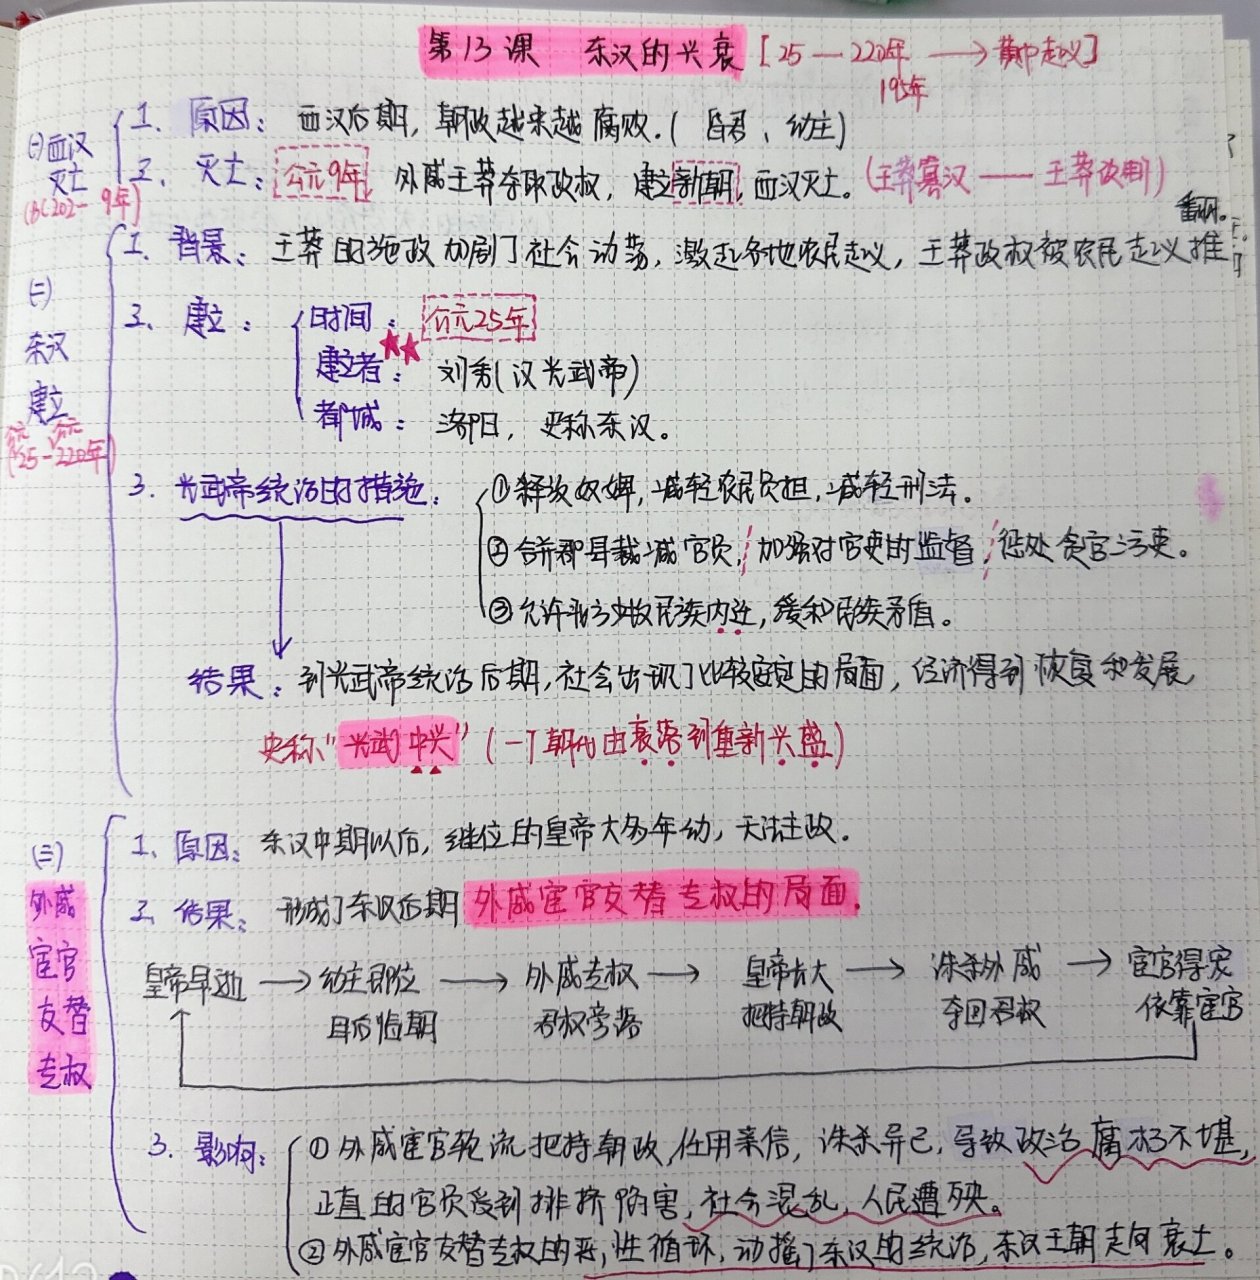 第13课 东汉的兴衰 [25—220年→黄巾起义]
195年
(一)西汉灭亡
(BC202-9年)
1、原因：西汉后期，朝政越来越腐败.(昏君、幼主)
2、灭亡：公元9年 外戚王莽夺取政权，建立新朝，西汉灭亡。(王莽篡汉——王莽改制)
(二)东汉建立
(公元25-公元220年)
1、背景：王莽的施政加剧了社会动荡，激起各地农民起义，王莽政权被农民起义推翻。
3、建立：
时间：公元25年
建立者：刘秀(汉光武帝)
都城：洛阳，史称东汉。
3.光武帝统治的措施：
①释放奴婢，减轻农民负担，减轻刑法。
②合并郡县裁减官员，加强对官吏的监督，惩处贪官污吏。
③允许北方少数民族内迁，缓和民族矛盾。
结果：到光武帝统治后期，社会出现了比较安定的局面，经济得到恢复和发展
史称“光武中兴”(一个朝代由衰落到重新兴盛)
(三)
外戚宦官交替专权
1、原因：东汉中期以后，继位的皇帝大多年幼，无法主政.
2、结果：形成了东汉后期外戚宦官交替专权的局面.
皇帝早逝→幼主即位→外戚专权→皇帝长大→诛杀外戚→宦官得宠
母后临朝 君权旁落 把持朝政 夺回君权 依靠宦官
3.影响：
①外戚宦官轮流把持朝政,任用亲信，诛杀异己，导致政治腐朽不堪，
正直的官员受到排挤陷害，社会混乱，人民遭殃。
②外戚宦官交替专权的恶性循环，动摇了东汉的统治，东汉王朝走向衰亡。